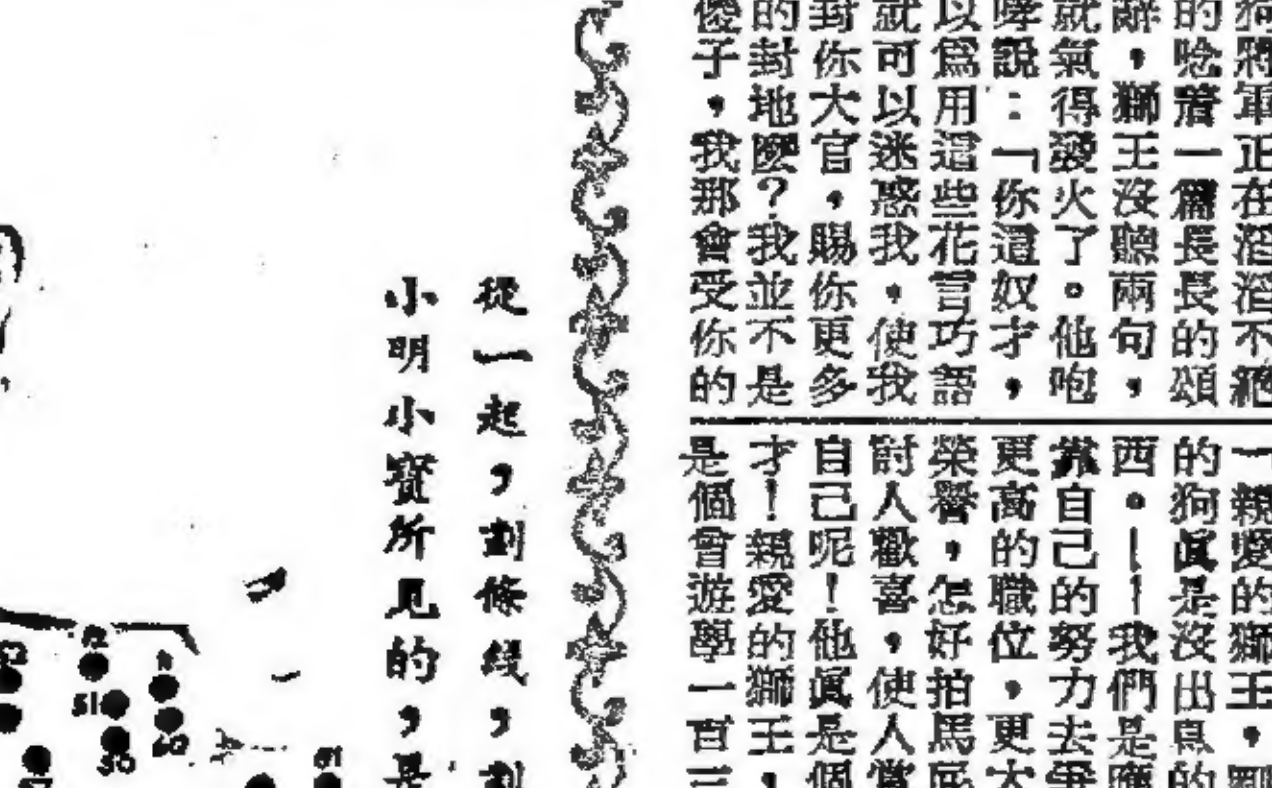 狗將軍正在滔滔不絕
的唸着一篇長長的頌
辭,獅王沒聽兩句,
就氣得發火了。他咆
哮說:「你這奴才,
以爲用這些花言巧語
就可以迷惑我,使我
封你大官,賜你更多
的封地麽?我並不是
傻子,我那會受你的
「親愛的獅王,
的狗眞是沒出息的
西。——我們是應
靠自己的努力去爭
更高的職位,更大
榮譽,怎好拍馬屁
討人歡喜,使人
自己呢!他眞是個
才!親愛的獅王,
是個曾遊學一百三
從一起,劃條綫,劃
小明小寳所見的,是
51
50
60